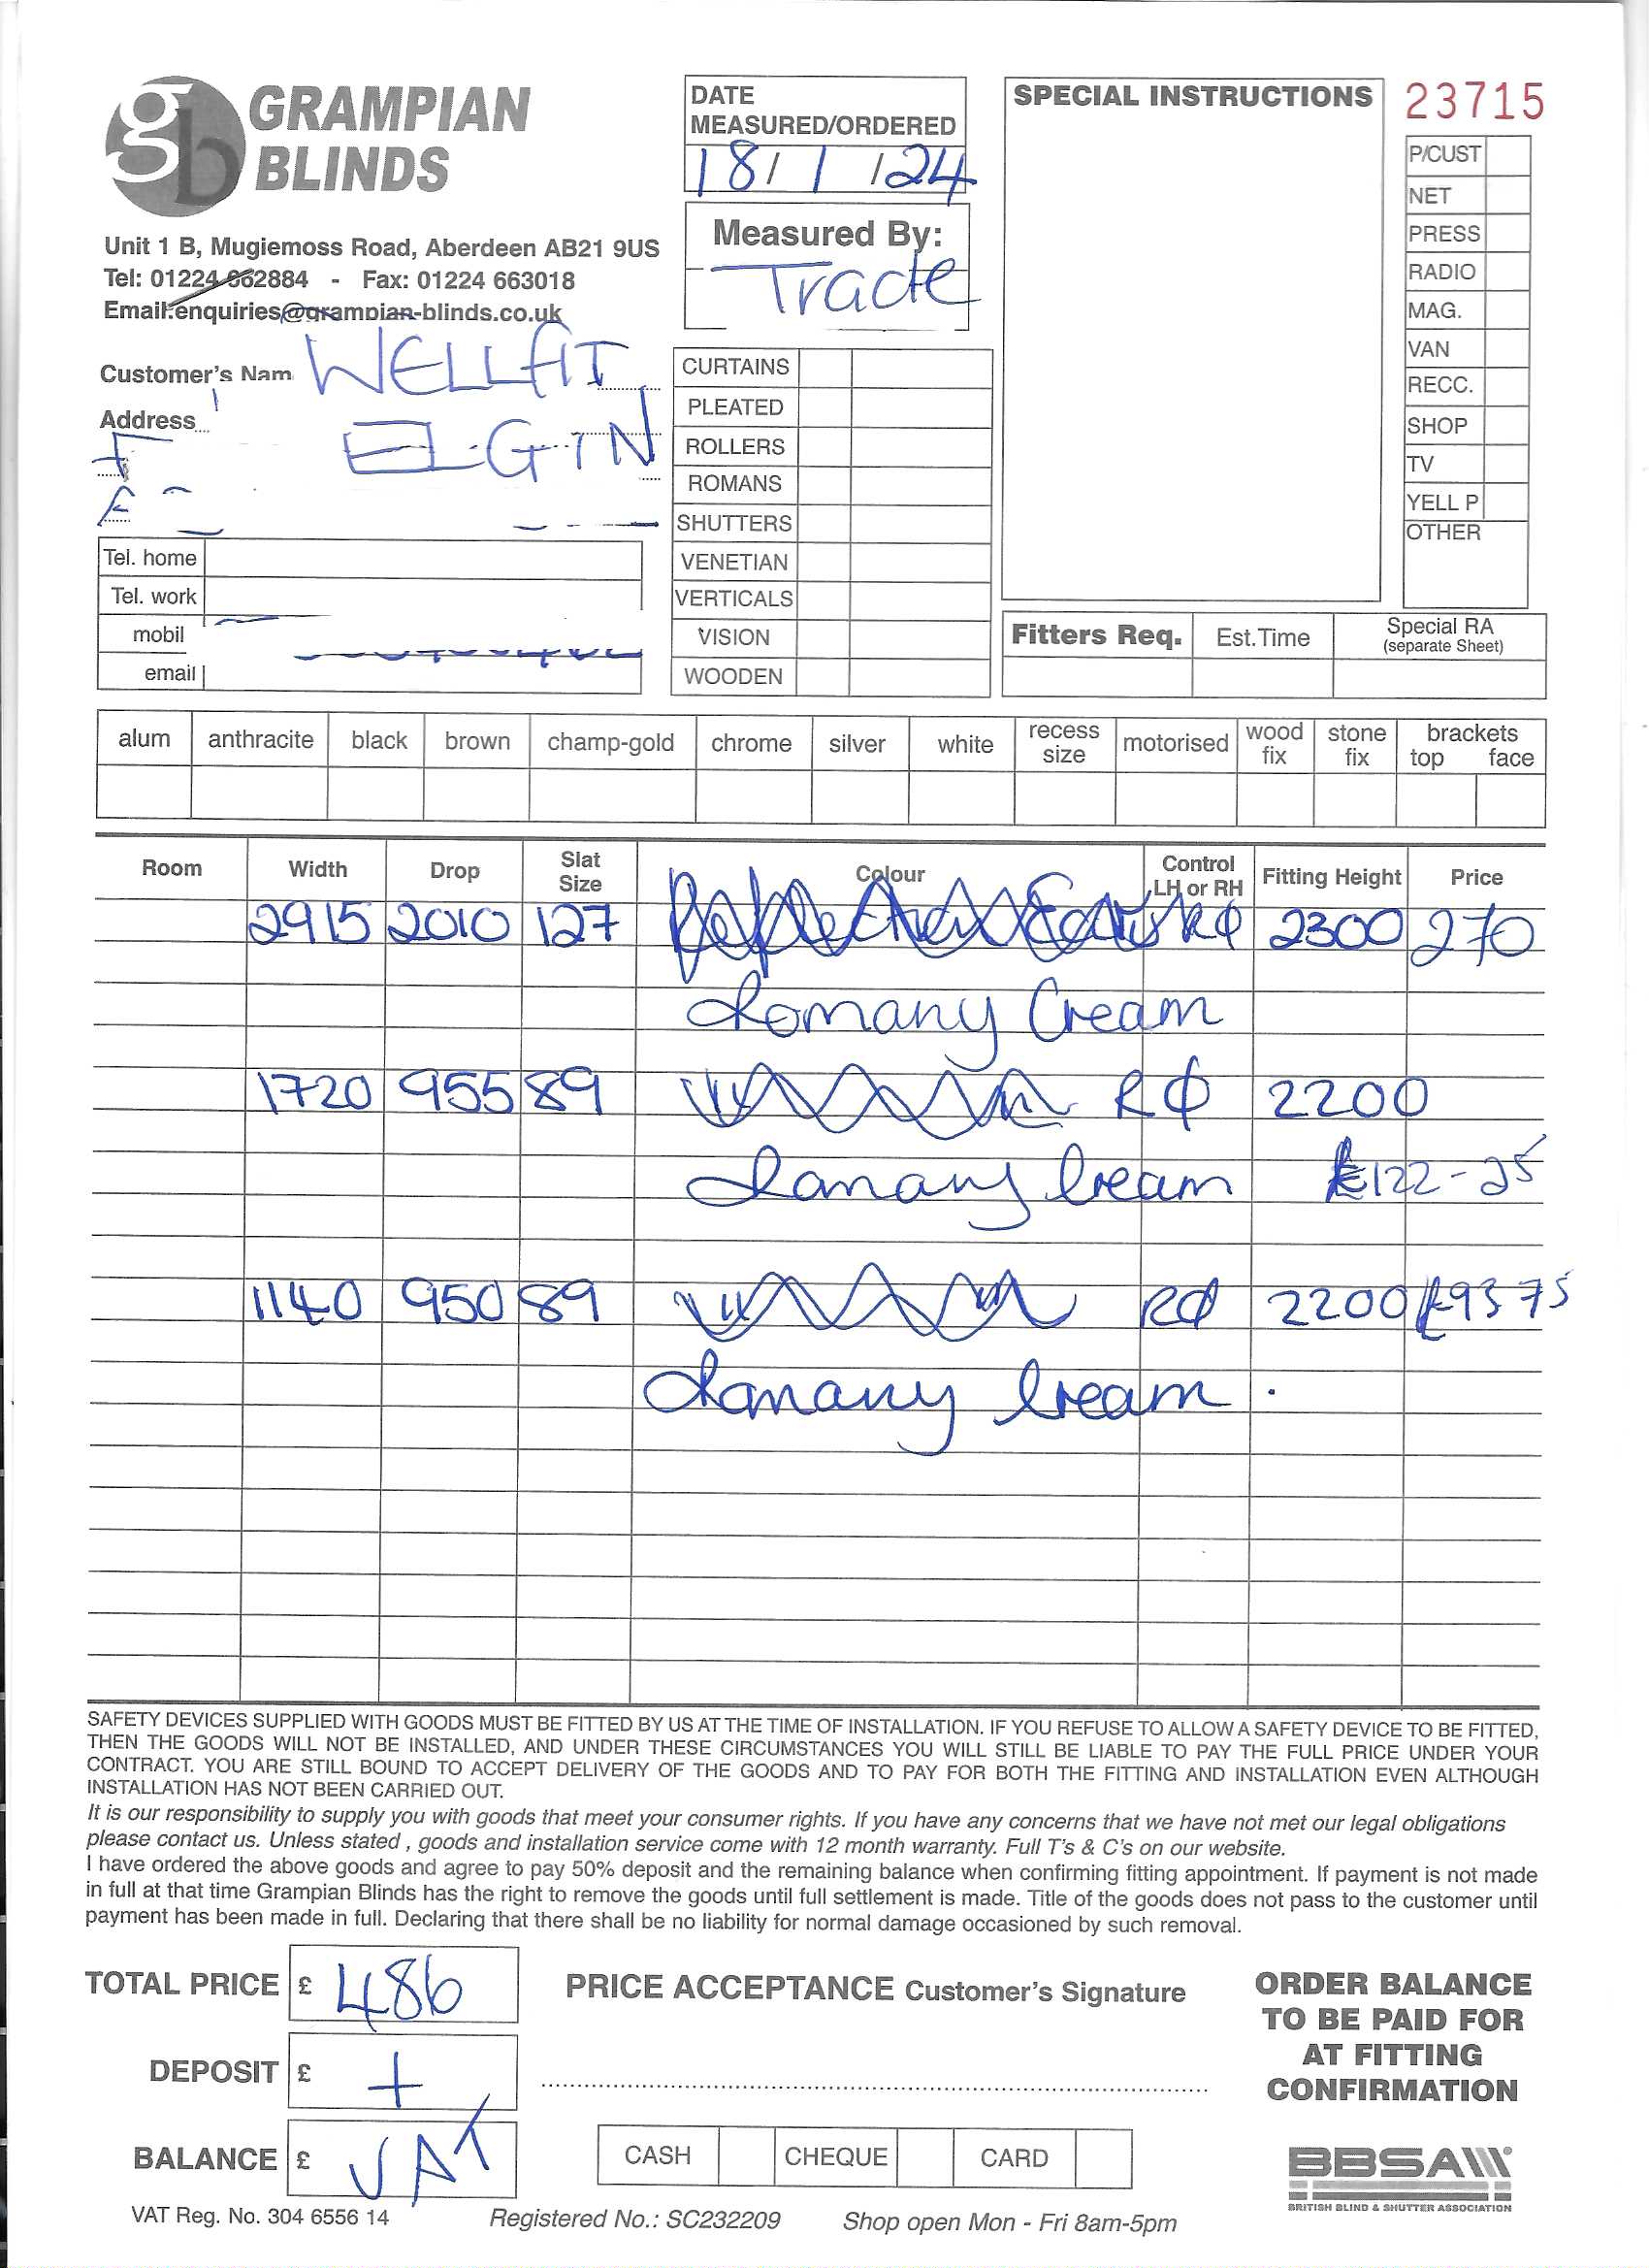 GRAMPIAN
BLINDS
Unit 1 B, Mugiemoss Road, Aberdeen AB21 9US
Tel: 01224 662884 - Fax: 01224 663018
Email:enquiries@grampian-blinds.co.uk
DATE
MEASURED/ORDERED
18/ 1 /24
Measured By:
Trade
SPECIAL INSTRUCTIONS
23715
P/CUST
NET
PRESS
RADIO
MAG.
VAN
RECC.
SHOP
TV
YELL P
OTHER
Customer's Nam WELLFIT
Address
ELGIN
Tel. home
Tel. work
mobil
email
CURTAINS
PLEATED
ROLLERS
ROMANS
SHUTTERS
VENETIAN
VERTICALS
VISION
WOODEN
Fitters Req. Est.Time Special RA
(separate Sheet)
alum anthracite black brown champ-gold chrome silver white recess size motorised wood fix stone fix brackets top face
Room Width Drop Slat Size Colour Control LH or RH Fitting Height Price
2915 2010 127 2300 270
Romany Cream
1720 955 89 2200
Romany Cream £122-25
1140 950 89 2200 £93 75
Romany Cream .
SAFETY DEVICES SUPPLIED WITH GOODS MUST BE FITTED BY US AT THE TIME OF INSTALLATION. IF YOU REFUSE TO ALLOW A SAFETY DEVICE TO BE FITTED,
THEN THE GOODS WILL NOT BE INSTALLED, AND UNDER THESE CIRCUMSTANCES YOU WILL STILL BE LIABLE TO PAY THE FULL PRICE UNDER YOUR
CONTRACT. YOU ARE STILL BOUND TO ACCEPT DELIVERY OF THE GOODS AND TO PAY FOR BOTH THE FITTING AND INSTALLATION EVEN ALTHOUGH
INSTALLATION HAS NOT BEEN CARRIED OUT.
It is our responsibility to supply you with goods that meet your consumer rights. If you have any concerns that we have not met our legal obligations
please contact us. Unless stated , goods and installation service come with 12 month warranty. Full T's & C's on our website.
I have ordered the above goods and agree to pay 50% deposit and the remaining balance when confirming fitting appointment. If payment is not made
in full at that time Grampian Blinds has the right to remove the goods until full settlement is made. Title of the goods does not pass to the customer until
payment has been made in full. Declaring that there shall be no liability for normal damage occasioned by such removal.
TOTAL PRICE £ 486
DEPOSIT £ +
BALANCE £ VAT
PRICE ACCEPTANCE Customer's Signature
CASH CHEQUE CARD
ORDER BALANCE
TO BE PAID FOR
AT FITTING
CONFIRMATION
BBSA
BRITISH BLIND & SHUTTER ASSOCIATION
VAT Reg. No. 304 6556 14 Registered No.: SC232209 Shop open Mon - Fri 8am-5pm